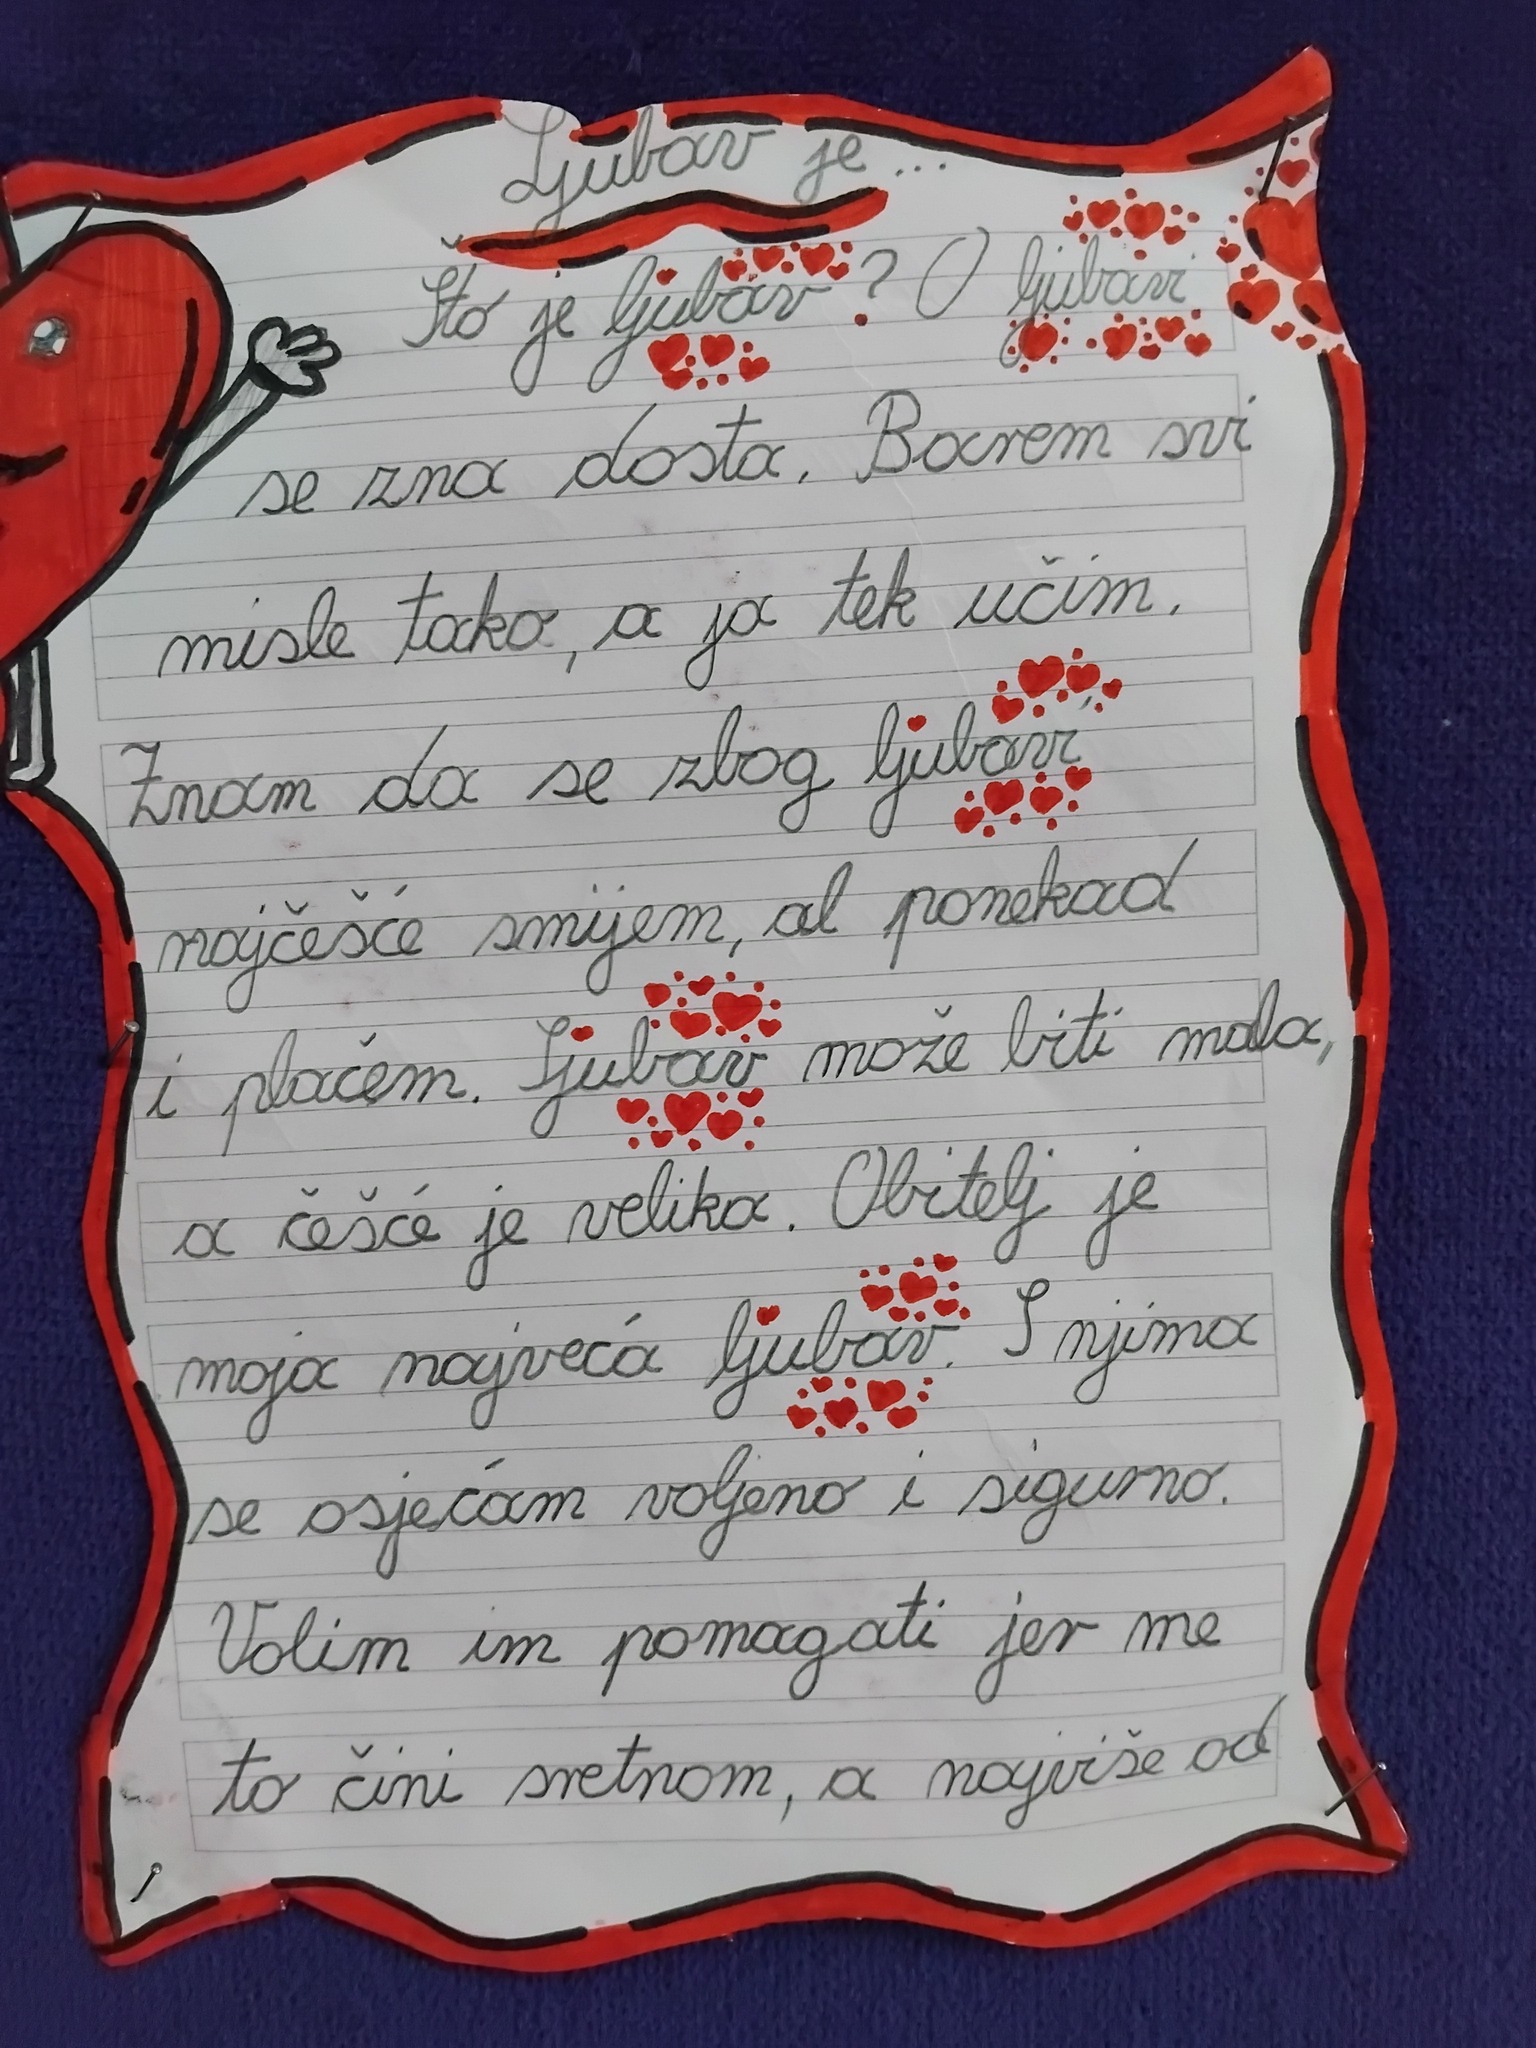 Ljubav je...
Što je ljubav? O ljubavi
se zna dosta. Barem svi
misle tako, a ja tek učim.
Znam da se zbog ljubavi
najčešće smijem, al ponekad
i plačem. Ljubav može biti mala,
a češće je velika. Obitelj je
moja najveća ljubav. S njima
se osjećam voljeno i sigurno.
Volim im pomagati jer me
to čini sretnom, a najviše od